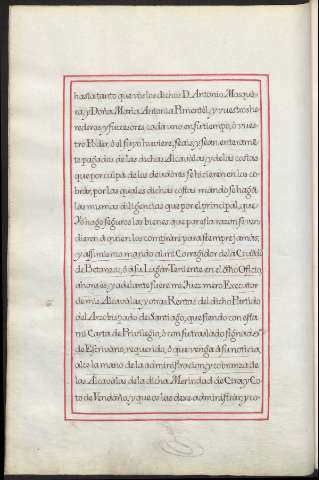 hasta tanto que vos los dichos D. Antonio Mosque-
ra, y Doña Maria Antonia Pimentèl, y vuestros he-
rederos, y succesores, cada uno en su tiempo, ò vues-
tro Poder, ò el suyo huviere, seais, y sean enteramte
pagados de las dichas Alcavalas, y de las costas
que por culpa de los deudores se hicieren en los co-
brar, por las quales dichas costas mando se haga
las mismas diligencias que por el principal, que
Yo hago seguros los bienes que por esta razon se ven-
dieren à quien los comprare para siempre jamas;
y assimismo mando al mi Corregidor de la Ciudad
de Betanzos, ò à su Lugar Teniente en el dho Oficio,
ahora es, y adelante fuere mi Juez mero Executor
de mis Alcavalas, y otras Rentas del dicho Partido
del Arzobispado de Santiago, que siendo con esta
mi Carta de Privilegio, ò con su traslado signado
de Escrivano, requerido, ò que venga à su noticia,
alce la mano de la administracion, y cobranza de
las Alcavalas de la dicha Merindad de Cira, y Co-
to de Vendaña, y que os las dexe administrar, y co-